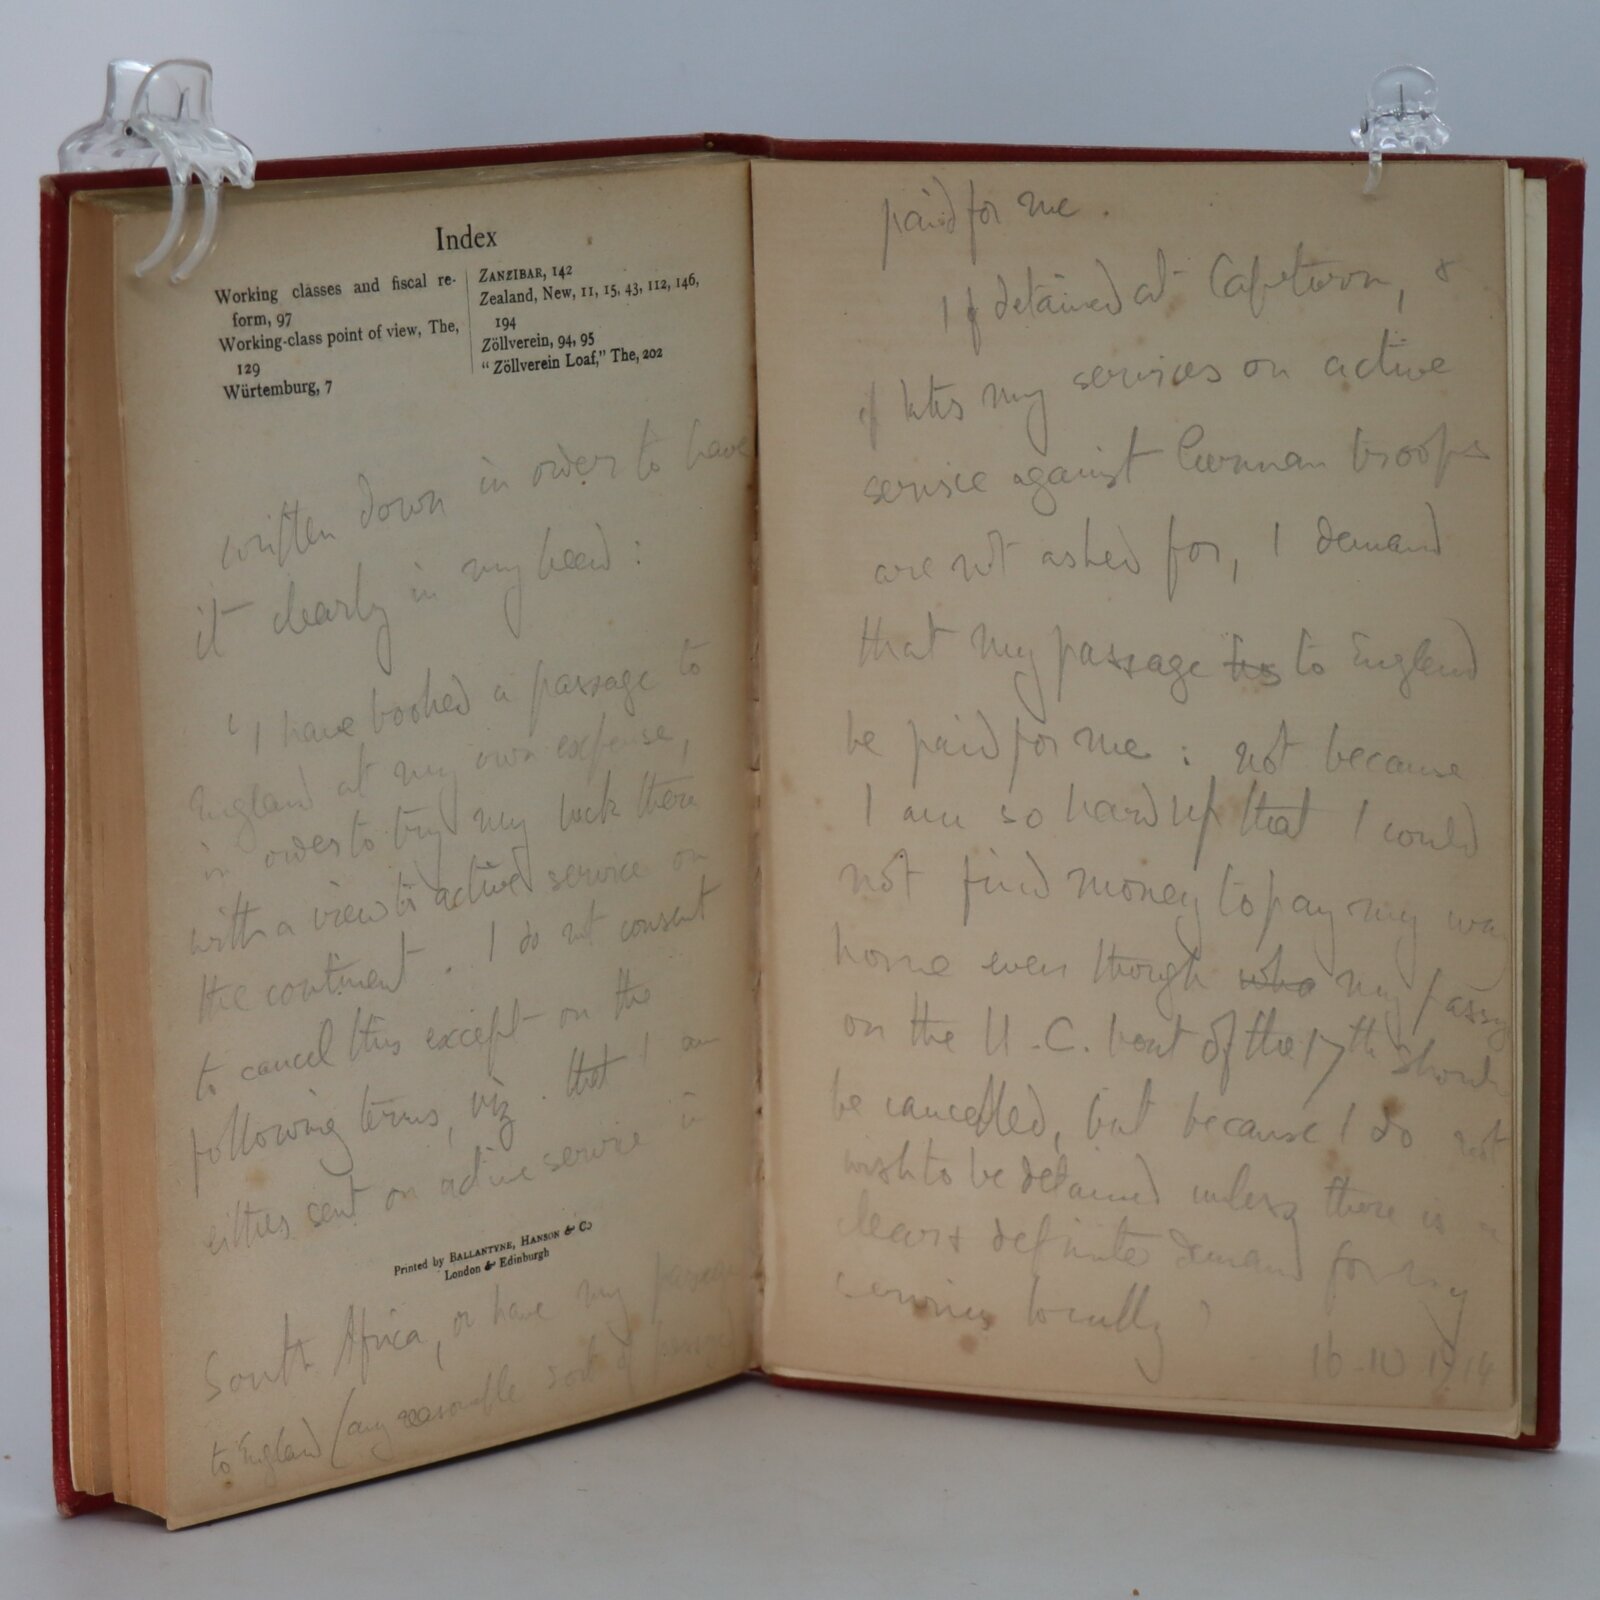 Index
Working classes and fiscal re-
form, 97
Working-class point of view, The,
129
Würtemburg, 7
ZANZIBAR, 142
Zealand, New, 11, 15, 43, 112, 146,
194
Zöllverein, 94, 95
"Zöllverein Loaf," The, 202
written down in order to have
it clearly in my head :
"I have booked a passage to
England at my own expense,
in order to try my luck there
with a view to active service on
the continent. I do not consent
to cancel this except on the
following terms, viz. that I am
either sent on active service in
Printed by BALLANTYNE, HANSON & Co
London & Edinburgh
South Africa, or have my passage
to England (any reasonable sort of passage)
paid for me.
If detained at Capetown, &
if later my services on active
service against German troops
are not asked for, I demand
that my passage to England
be paid for me : not because
I am so hard up that I could
not find money to pay my way
home even though my passage
on the U.C. boat of the 17th should
be cancelled, but because I do not
wish to be detained unless there is a
clear & definite demand for my
services locally"
16-10 1914